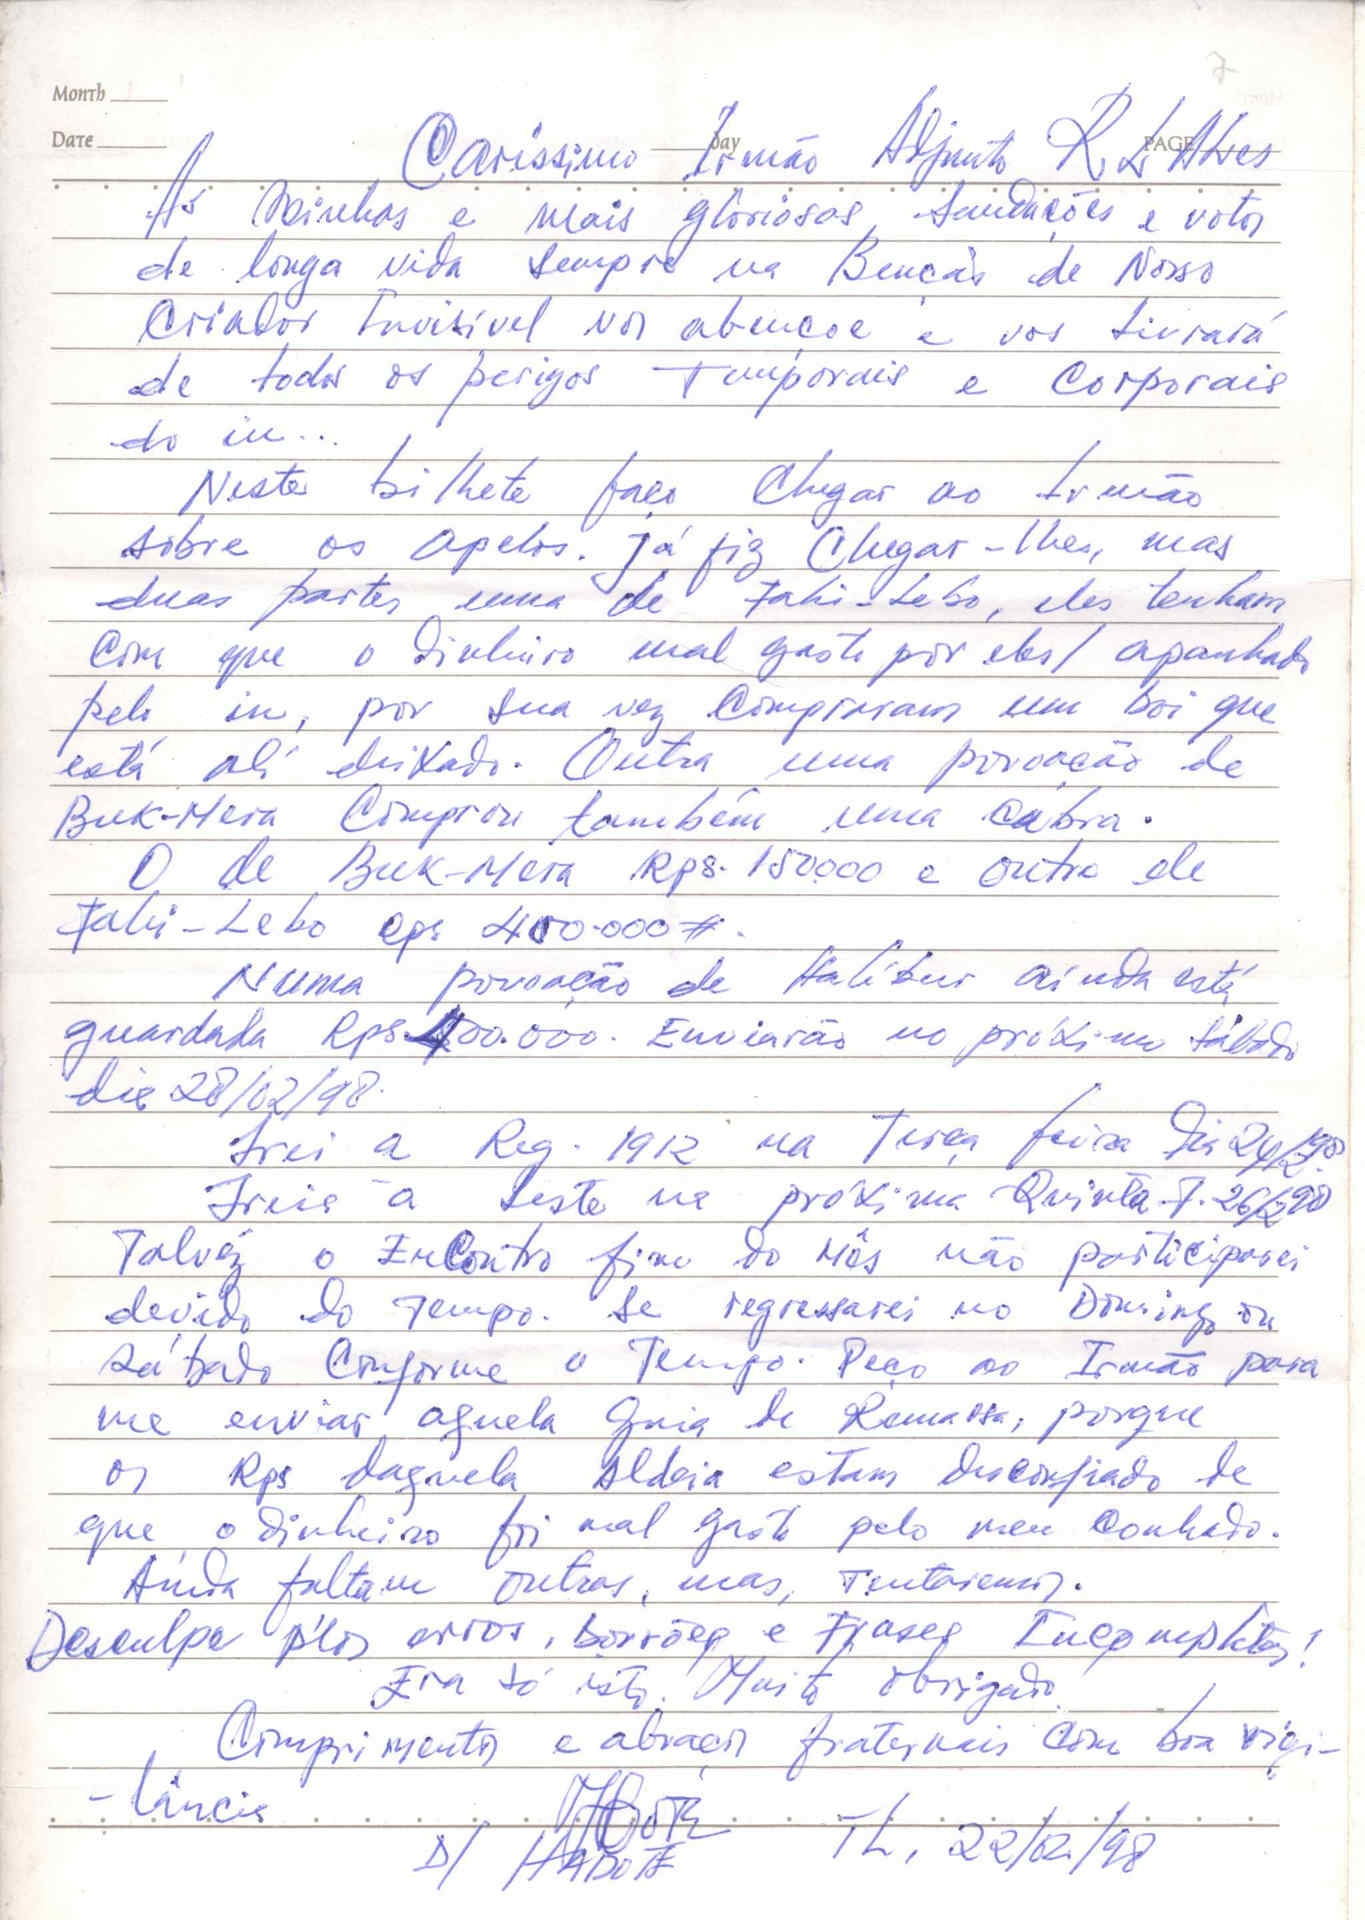 7
Month
Date
Day
PAGE
Caríssimo Irmão Adjunto R. L. Alves
As Minhas e mais gloriosas, Saudações e votos
de longa vida sempre na Bençãs de Nosso
Criador Invisível vos abençoe e vos livrará
de todos os perigos Temporais e Corporais
do in...
Neste bilhete faço Chegar ao Irmão
sobre os apelos. Já fiz Chegar-lhes, mas
duas partes uma de Fahi-Lebo, eles tenham
com que o dinheiro mal gasto por eles/ apanhado
pelo in, por sua vez Compraram um boi que
está ali deixado. Outra uma povoação de
Buk-Mera Comprou também uma cabra.
O de Buk-Mera Rps. 150.000 e outro de
Fahi-Lebo rps 400.000#.
Numa povoação de Halibur ainda está
guardada Rps. 400.000. Enviarão no próximo sábado
dia 28/02/98.
Irei a Reg. 1912 na Terça feira Dia 24/2/98.
Ireis a Leste na próxima Quinta-F. 26/2/98
Talvéz o Encontro fim do Mês não participarei
devido do Tempo. Se regressarei no Domingo ou
sábado Conforme o Tempo. Peço ao Irmão para
me enviar aquela Guia de Remassa, porque
os Rps daquela Aldeia estam desconfiado de
que o dinheiro foi mal gasto pelo meu conhado.
Ainda faltam outras, mas, Tentaremos.
Desculpe p'los erros, Borrões e Frases Encompletas!
Era só isto. Muito obrigado
Comprimentos e abraços fraternais com boa vigi-
-lância
D/ HADOTE
TL, 22/02/98